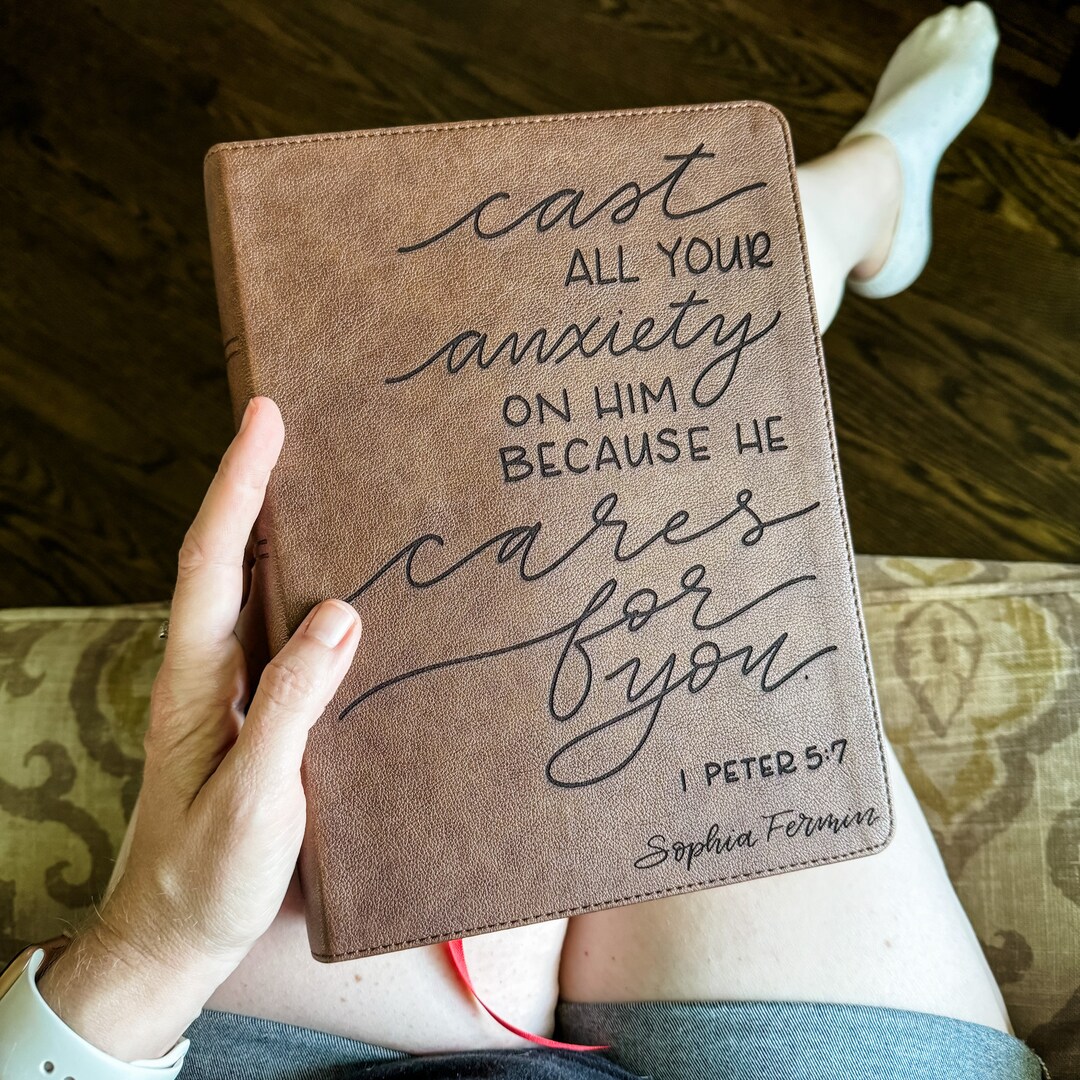 cast
ALL YOUR
anxiety
ON HIM
BECAUSE HE
cares
for
you.
1 PETER 5:7
Sophia Fermin